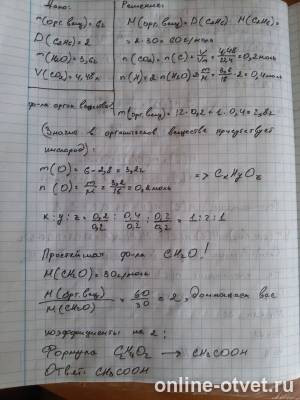 Дано:
Решение:
m(орг.вещ)=6г
M(орг.вещ)=D(C₂H₆)·M(C₂H₆)=
D(C₂H₆)=2
=2·30=60г/моль
m(H₂O)=3,6г
n(CO₂)=n(C)=V/Vm=4,48/22,4=0,2моль
V(CO₂)=4,48л
n(H)=2n(H₂O)=m/M=3,6/18·2=0,4моль
ф-ла орган. вещества
m(орг.вещ)=12·0,2+1·0,4=2,8г
(Значит в органическом веществе присутствует
кислород):
m(O)=6-2,8=3,2г
=> CxHyOz
n(O)=m/M=3,2/16=0,2моль
x:y:z=0,2/0,2:0,4/0,2:0,2/0,2=1:2:1
Простейшая ф-ла: CH₂O!
M(CH₂O)=30г/моль
M(орг.вещ)/M(CH₂O)=60/30=2, домножаем все
коэффициенты на 2:
Формула C₂H₄O₂ → CH₃COOH
Ответ: CH₃COOH
online-otvet.ru